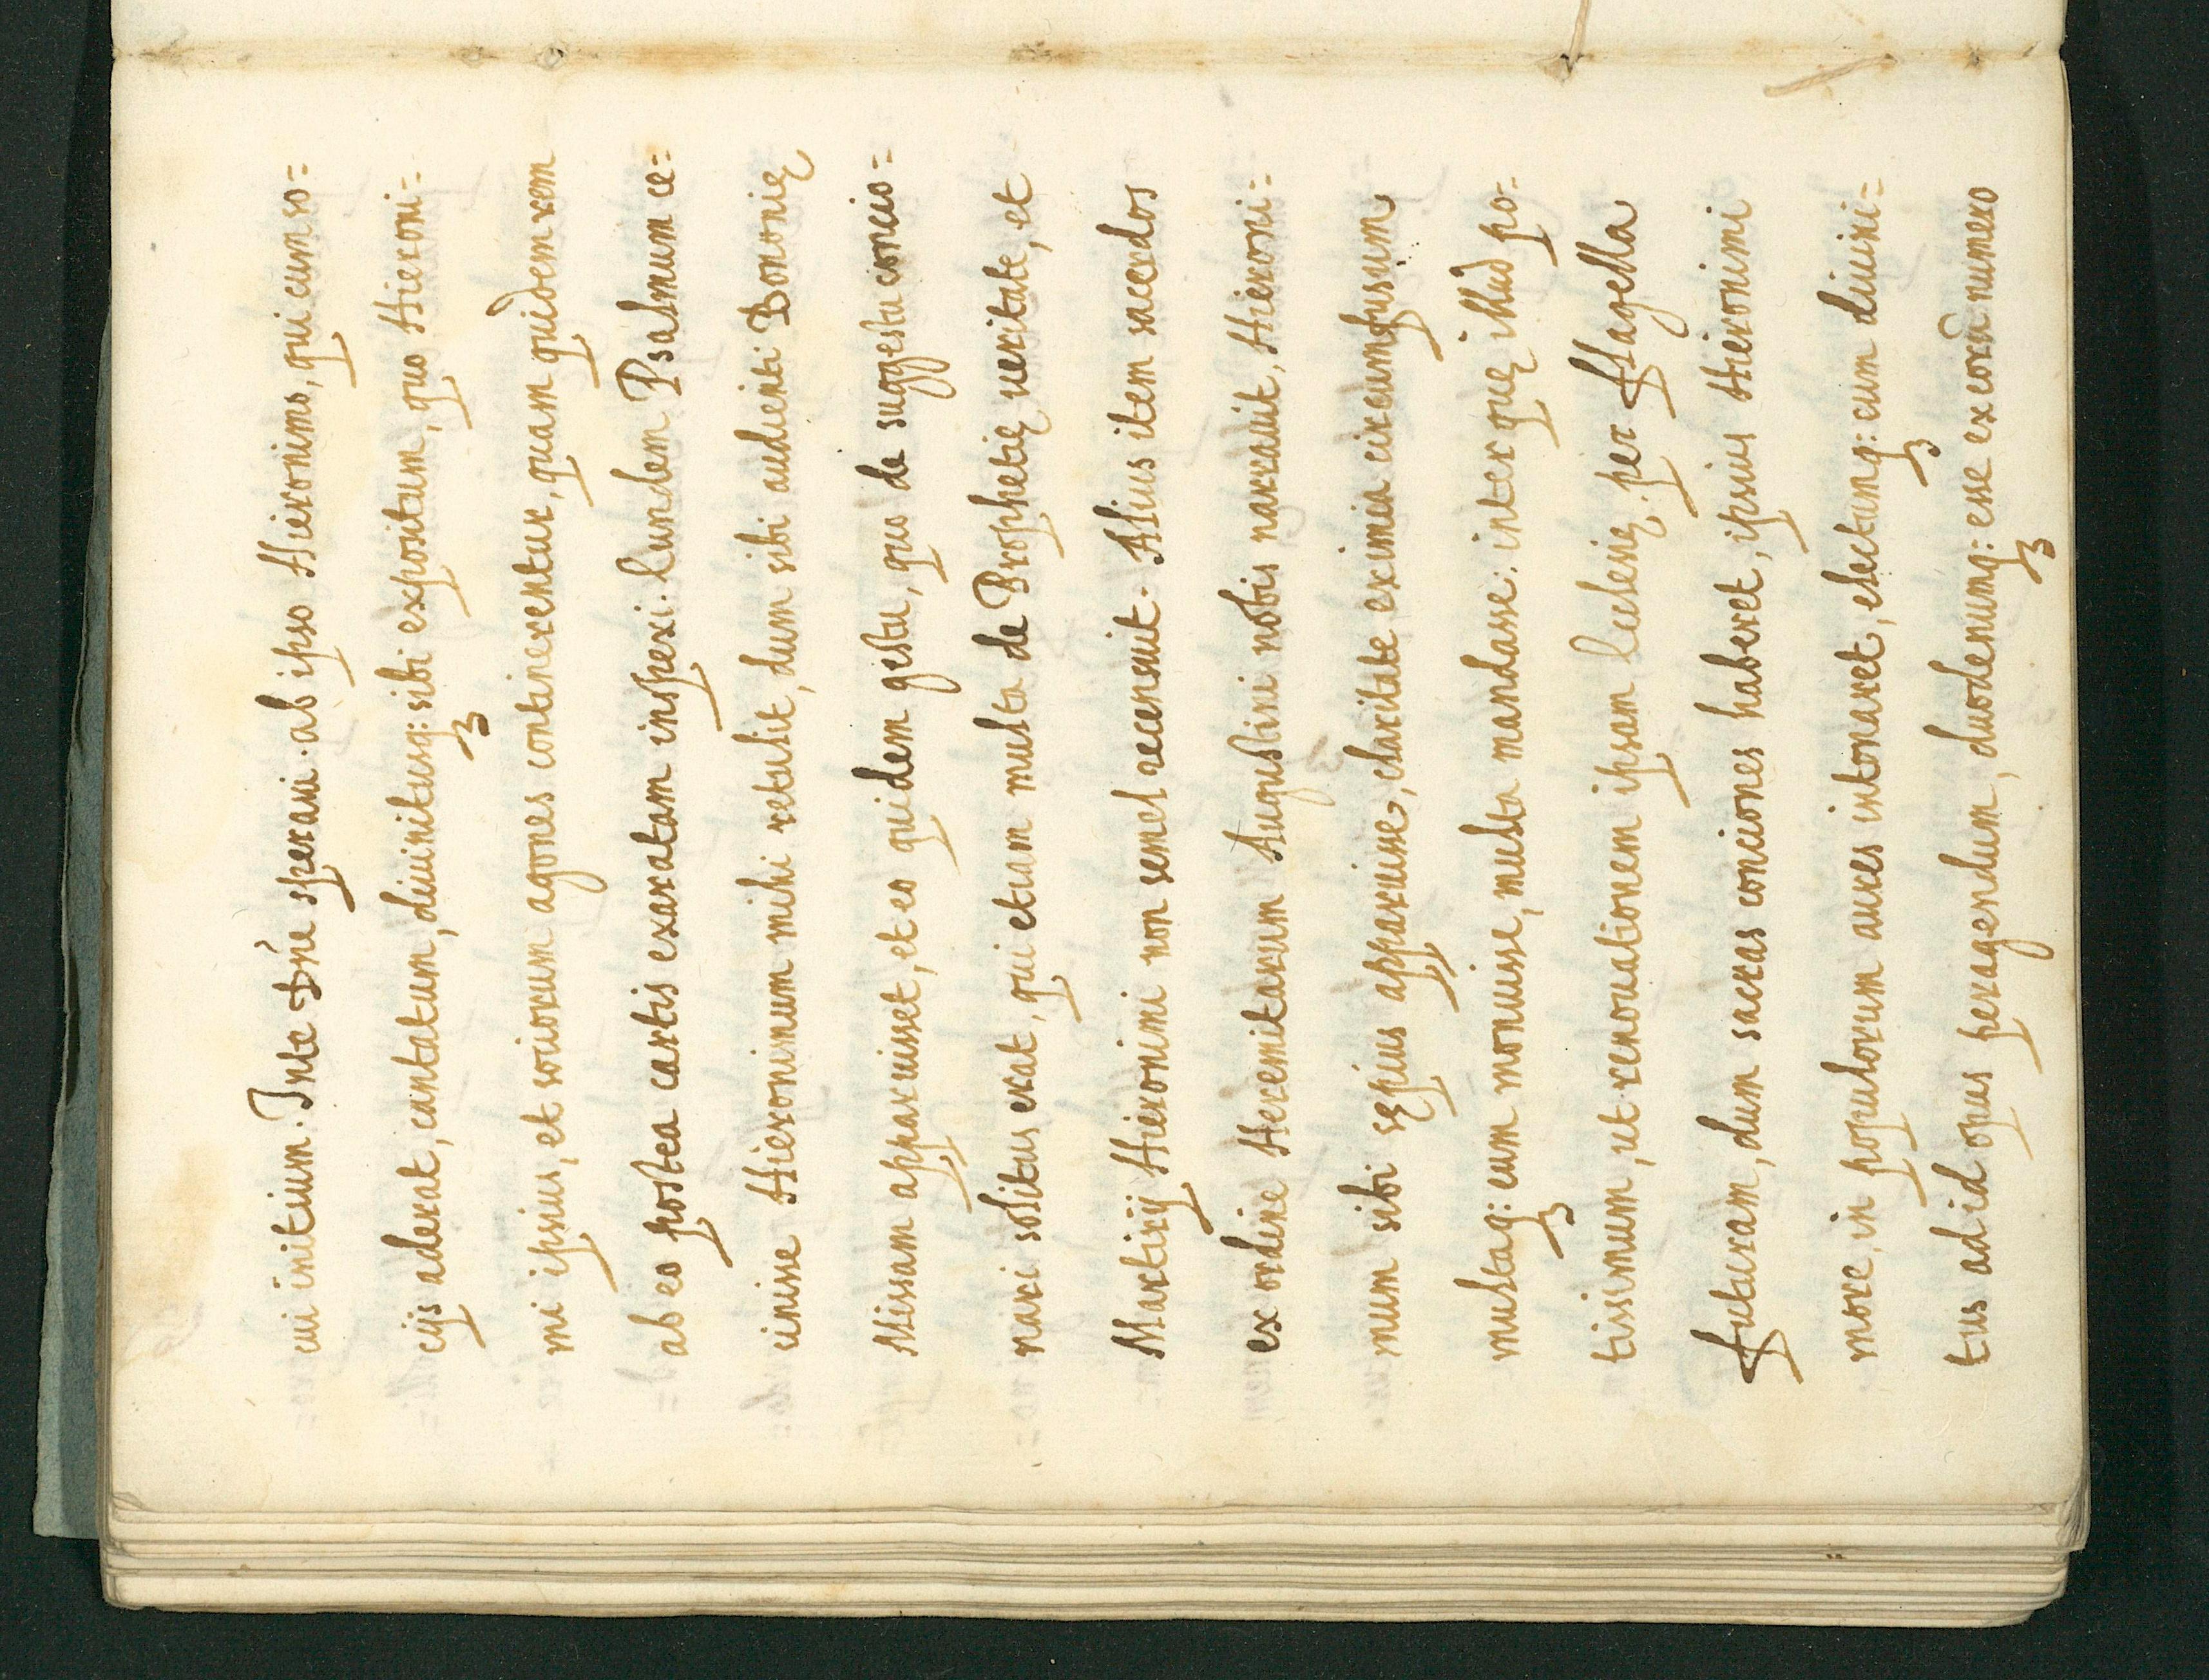 cui initium. In te Dn̄e speraui. ab ipso Hieronimo, qui cum so=
cijs aderat, cantatum, diuinitusq: sibi expositum, quo Hieroni=
mi ipsius, et sociorum agones continerentur, quam quidem rem
ab eo postea cartis exaratam inspexi. Eundem Psalmum ce=
cinisse Hieronimum mihi retulit, dum sibi audienti Bononię
Missam apparuisset, et eo quidem gestu, quo de suggestu concio=
nari solitus erat, qui etiam multa de Prophetię ueritate, et
Martirij Hieronimi non semel recensuit. Alius item sacerdos
ex ordine Heremitarum Augustini nobis narrauit, Hieroni=
mum sibi sępius apparuisse, claritate eximia circumfusum
multaq: eum monuisse, multa mandasse: inter quę illud po=
tissimum, ut renouationem ipsam Ecclesię per flagella
futuram, dum sacras conciones haberet, ipsius Hieronimi
more, in populorum aures intonaret, electumq: eum diuini=
tus ad id opus peragendum, duodenumq: esse ex eorū numero